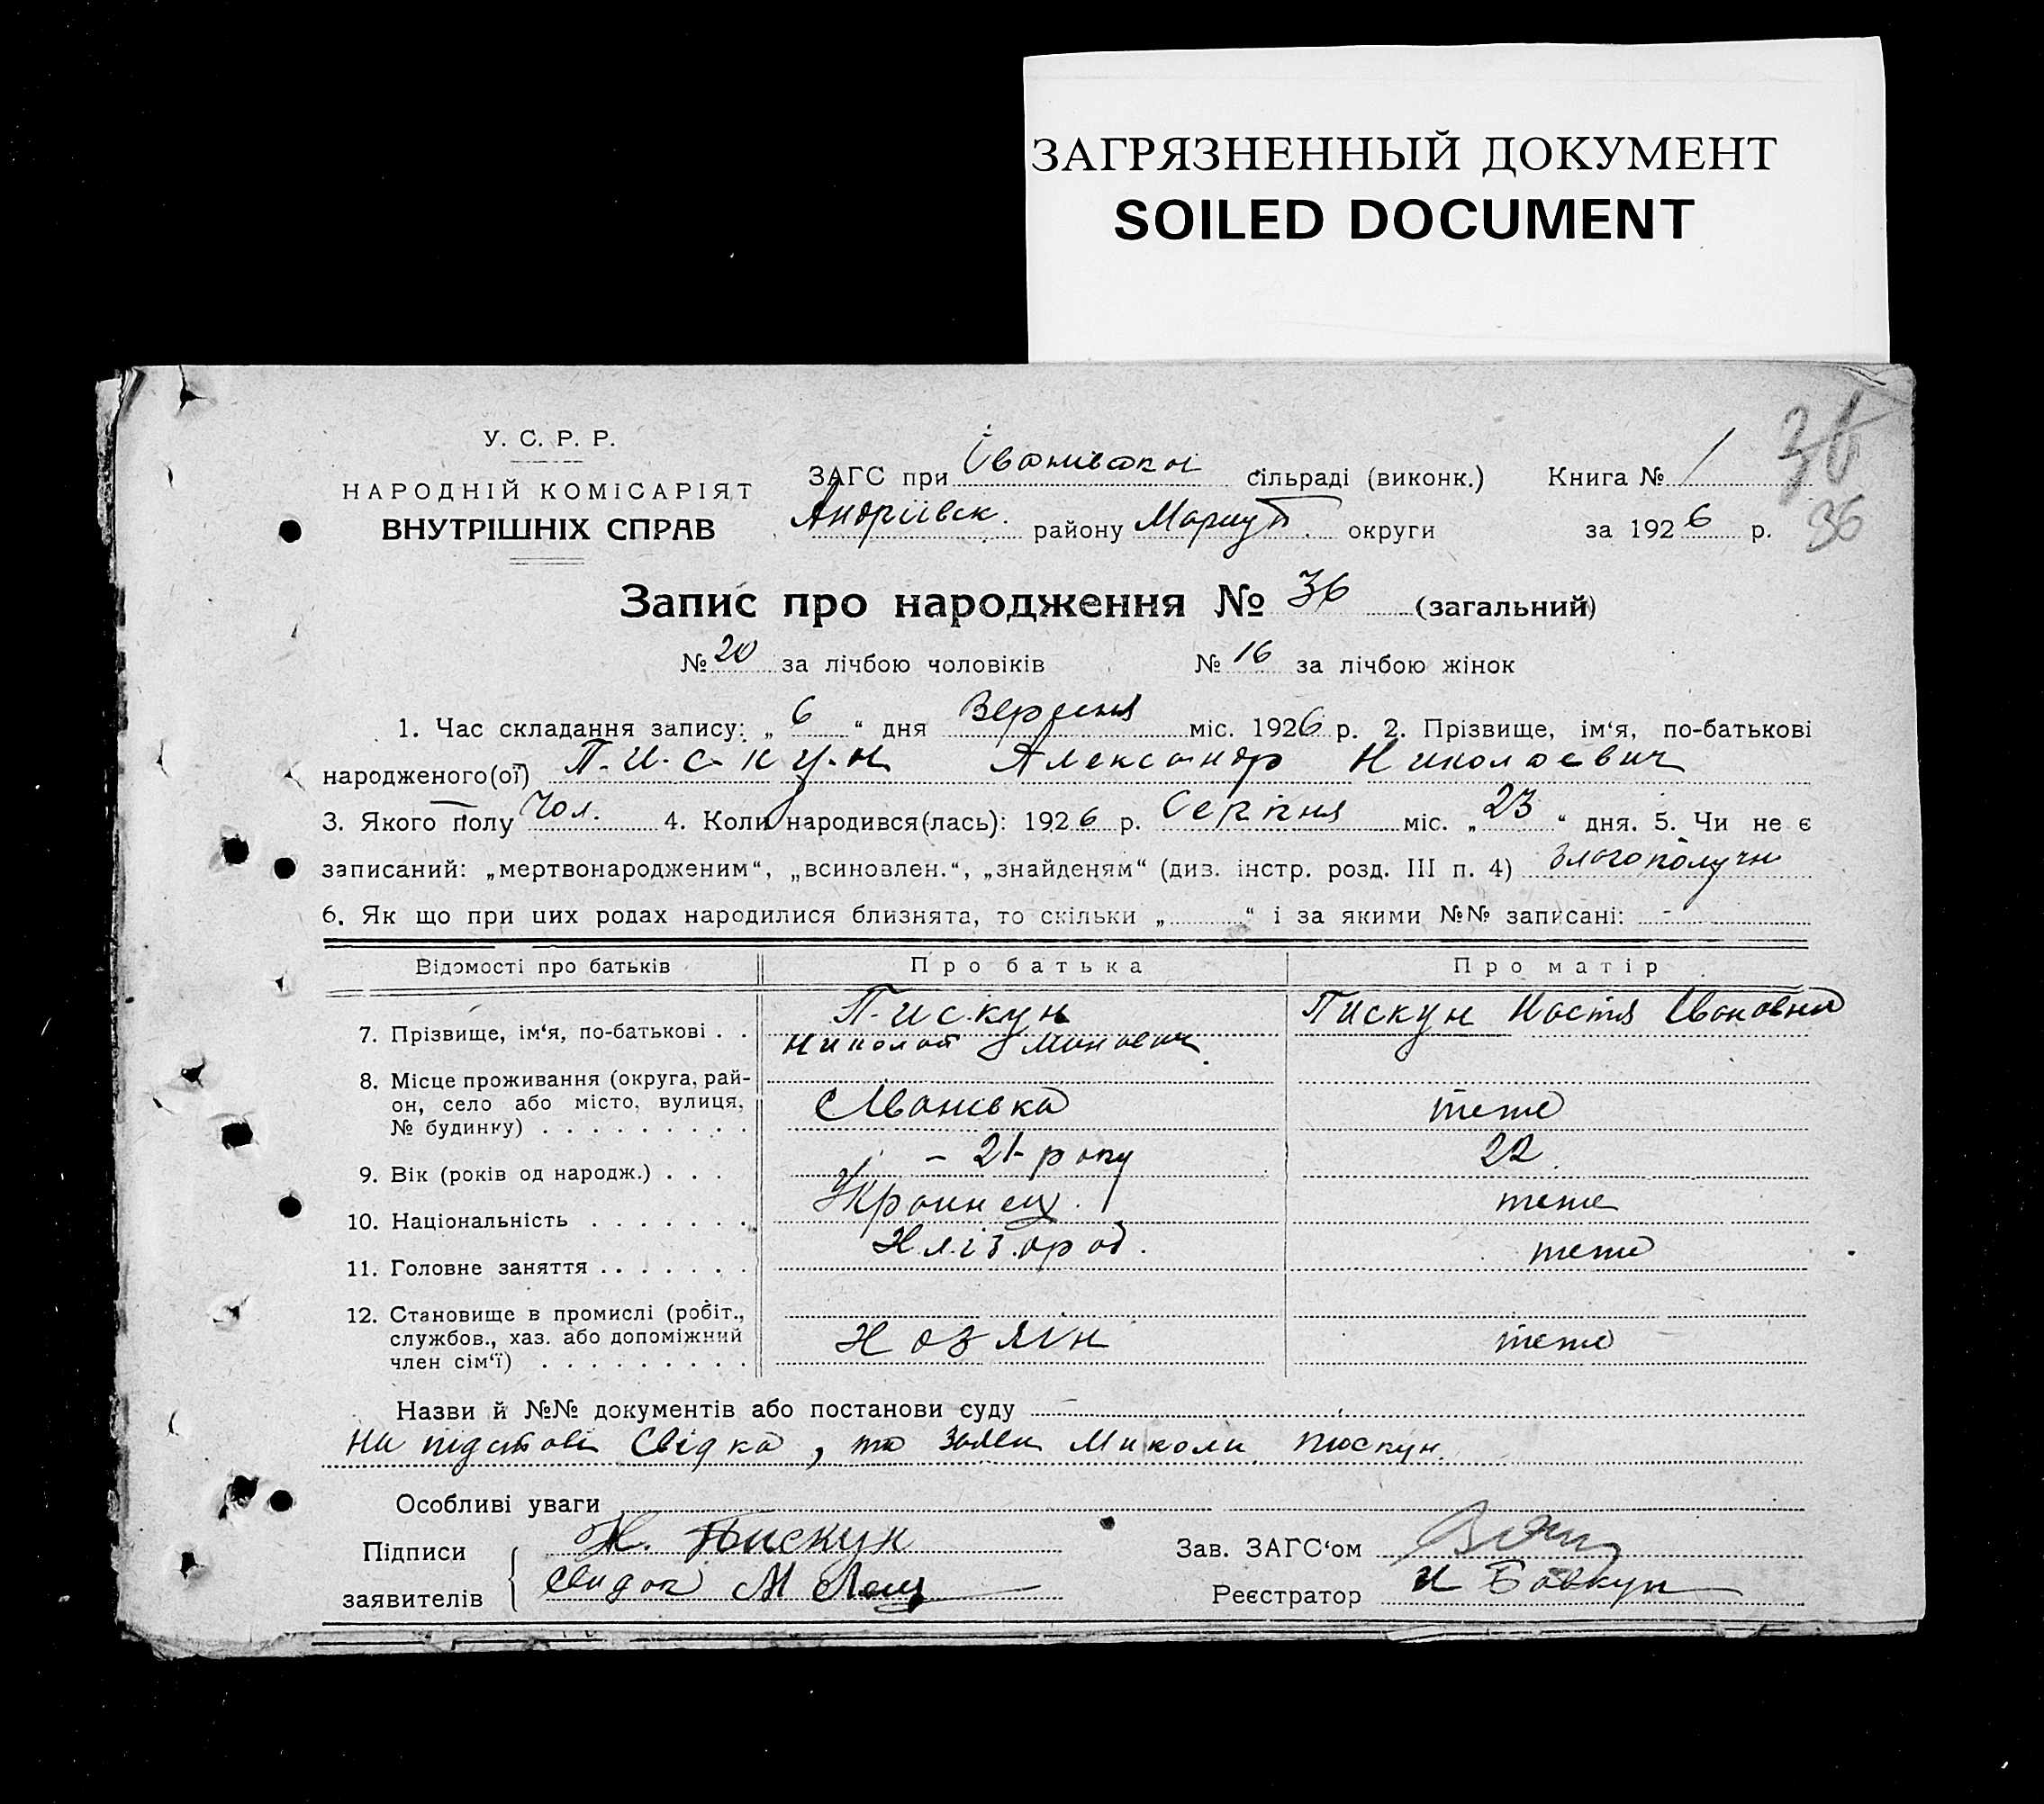 ЗАГРЯЗНЕННЫЙ ДОКУМЕНТ
SOILED DOCUMENT
У. С. Р. Р.
НАРОДНІЙ КОМІСАРІЯТ
ВНУТРІШНІХ СПРАВ
ЗАГС при Іванівскої сільраді (виконк.) Книга № 1
Андріівск. району Мариуп. округи за 1926 р.
36
36
Запис про народження № 36 (загальний)
№ 20 за лічбою чоловіків № 16 за лічбою жінок
1. Час складання запису: „ 6 “ дня Вересня міс. 1926 р. 2. Прізвище, ім‘я, по-батькові
народженого(ої) Пискун Александр Николаевич
3. Якого полу Чол. 4. Коли народився(лась): 1926 р. Серпня міс. „ 23 “ дня. 5. Чи не є
записаний: „мертвонародженим“, „всиновлен.“, „знайденям“ (див. інстр. розд. III п. 4) благополучн
6. Як що при цих родах народилися близнята, то скільки „ “ і за якими №№ записані: -
Відомості про батьків Про батька Про матір
7. Прізвище, ім‘я, по-батькові . . Пискун Николай Пискун Настя Івановна
8. Місце проживання (округа, рай-
он, село або місто, вулиця, Іванівка теже
№ будинку)
9. Вік (років од народж.) . . . – 21 року 22
10. Національність Украинец. теже
11. Головне заняття Хлібороб. теже
12. Становище в промислі (робіт.,
службов., хаз. або допоміжний Хозяін теже
член сім‘ї)
Назви й №№ документів або постанови суду
На підставі Свідка, та Миколи Пискун.
Особливі уваги
Підписи Н. Пискун Зав. ЗАГС‘ом
заявителів Свидок М Лещ Реєстратор И Бовкун